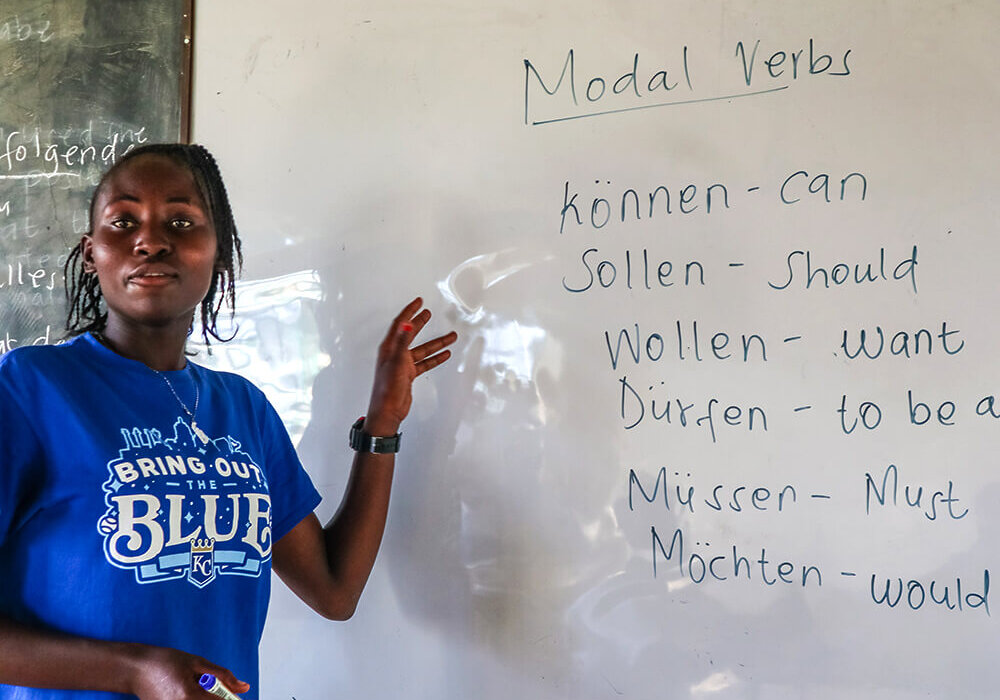 folgende
lles
Modal Verbs
können - can
Sollen - Should
Wollen - want
Dürfen - to be a
Müssen - Must
Möchten - would
BRING OUT
THE
BLUE
KC